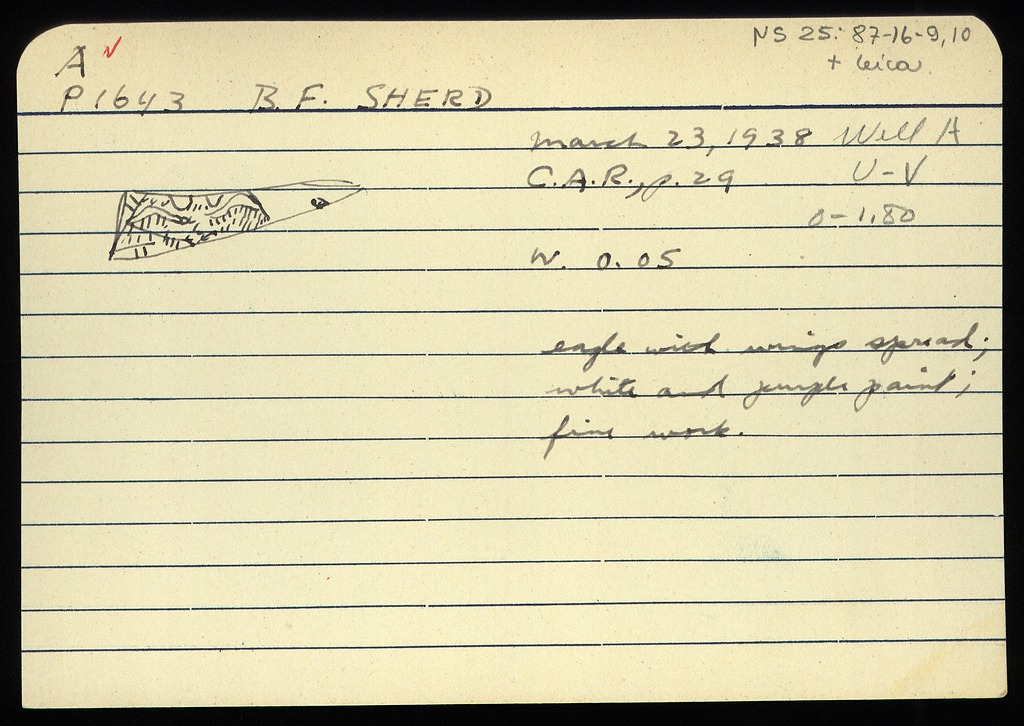 A
NS 25: 87-16-9,10
+ leica
P1643 B.F. SHERD
March 23, 1938 Well A
C.A.R., p. 29 U-V
0-1.80
W. 0.05
eagle with wings spread;
white and purple paint;
fine work.